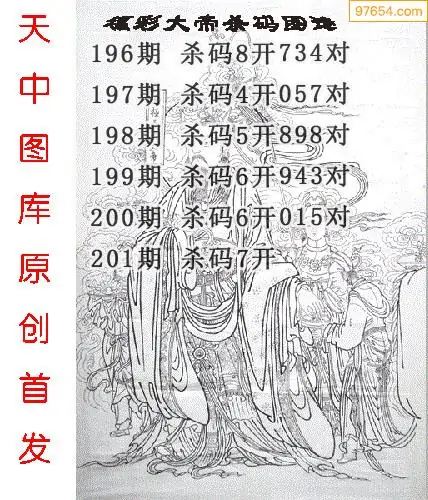 97654.com
福彩大帝杀码图迷
196期 杀码8开734对
197期 杀码4开057对
198期 杀码5开898对
199期 杀码6开943对
200期 杀码6开015对
201期 杀码7开
天中图库原创首发